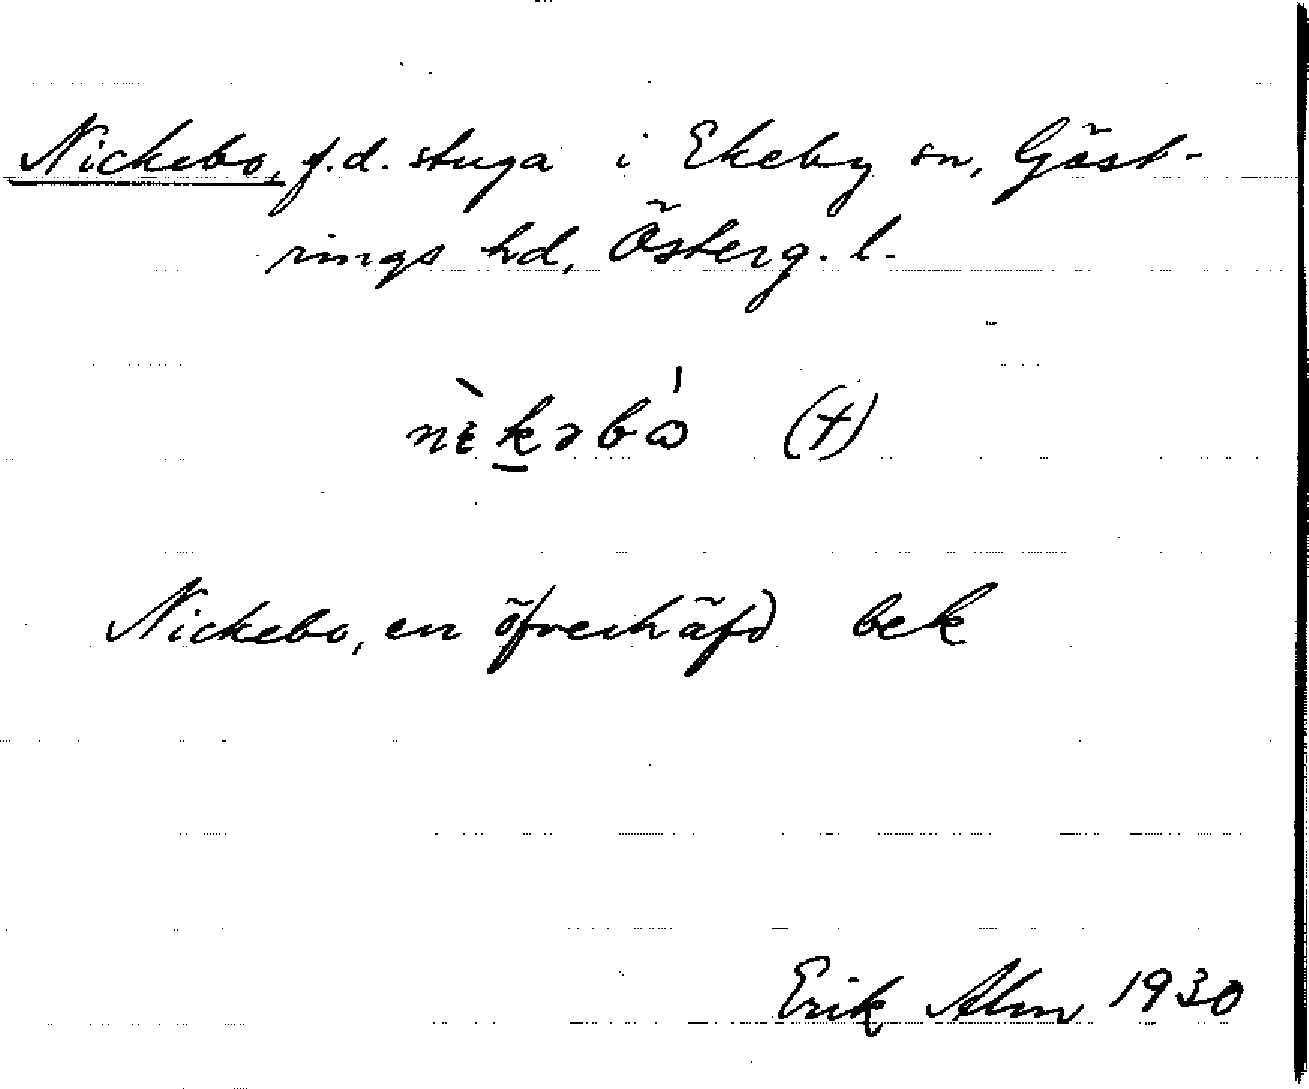 Nickebo, f.d. stuga i Ekeby sn, Göst-
rings hd, Österg. l.
nὶkəbὼ (+)
Nickebo, en öfverhäfd bek
Erik Alm 1930